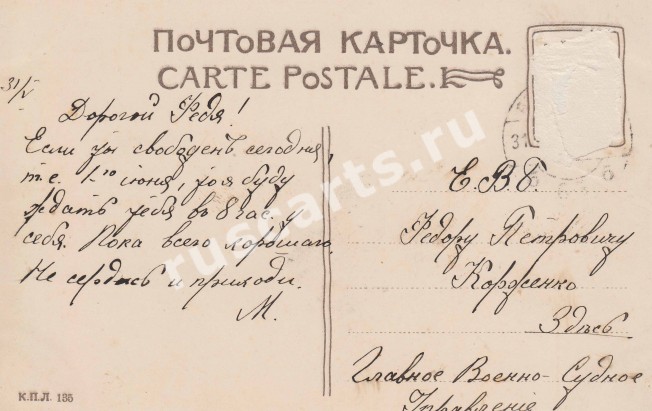 ПОЧТОВАЯ КАРТОЧКА.
CARTE POSTALE.
31/V
Дорогой Федя!
Если ты свободенъ сегодня,
т.е. 1го июня, то я буду
ждать тебя въ 8 час. у
себя. Пока всего хорошаго.
Не сердись и приходи.
М.
31
Е.В.Б.
Федору Петровичу
Здѣсь
Главное Военно-Судное
Управленіе
К.П.Л. 135
rusearts.ru